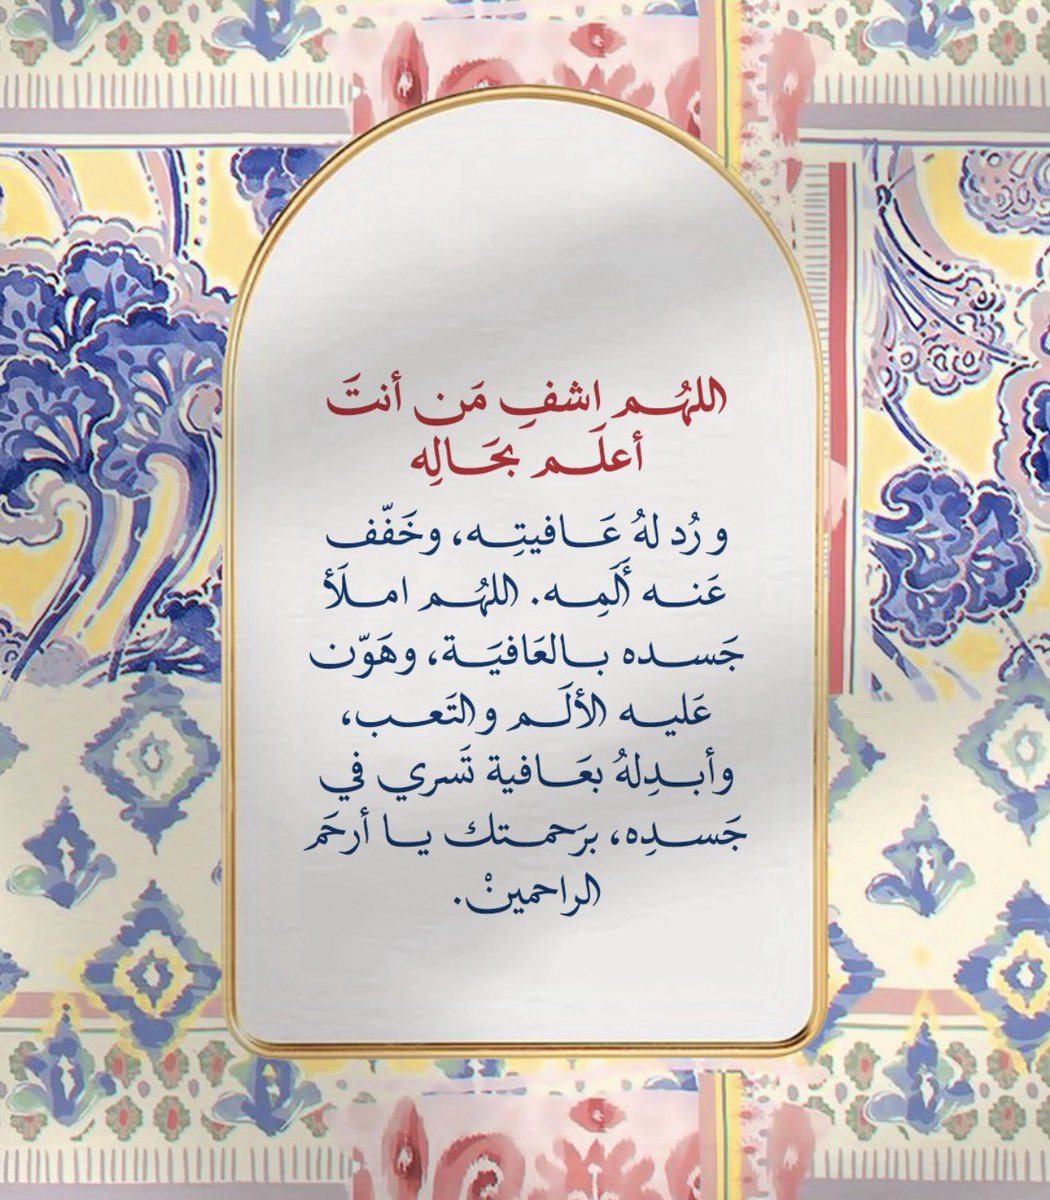 اللهُم اشفِ مَن أنتَ
أعلَم بحَالِه
ورُد لهُ عَافيتِه، وخَفّف
عَنه ألَمِه. اللهُم املَأ
جَسده بالعَافيَة، وهَوّن
عَليه الألَم والتَعب،
وأبدِلهُ بعَافية تَسري في
جَسدِه، برَحمتك يا أرحَم
الراحمينْ.